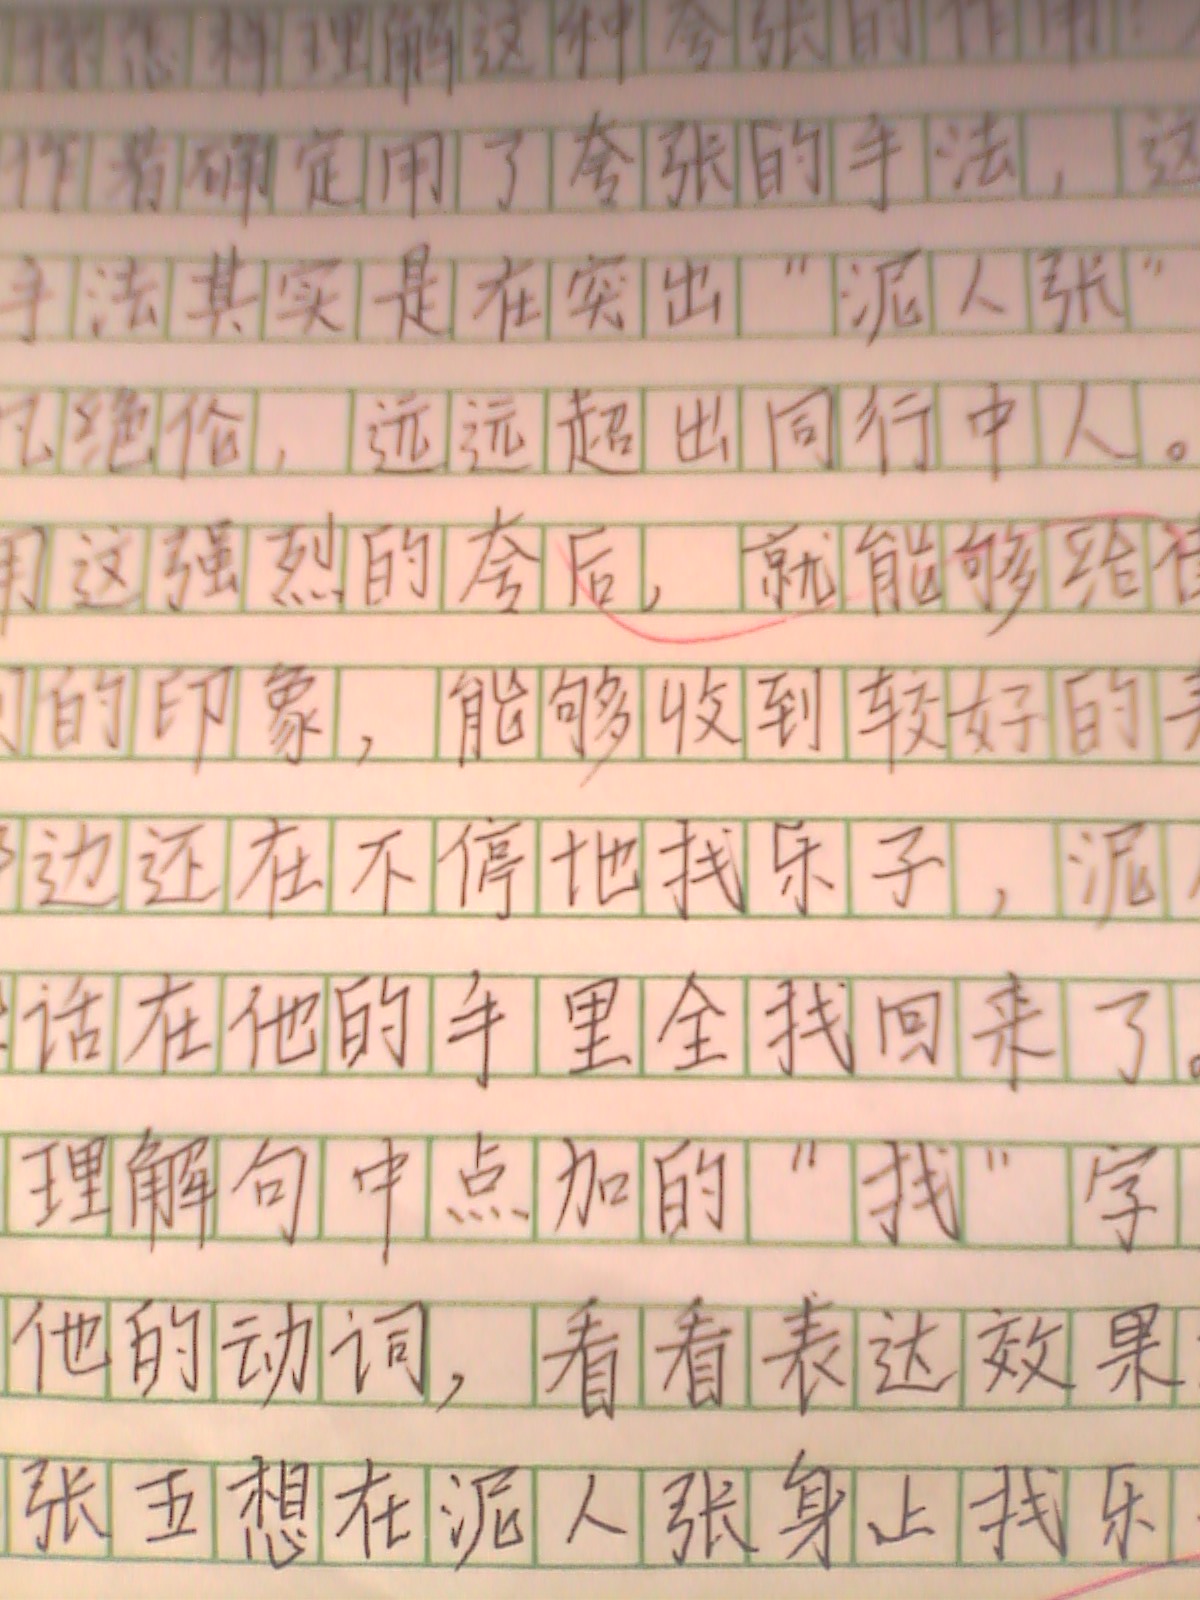 你怎样理解这种夸张的作用?
作者确定用了夸张的手法,这
手法其实是在突出"泥人张"
凡绝伦,远远超出同行中人。
用这强烈的夸后,就能够给
的印象,能够收到较好的
边还在不停地找乐子,泥
话在他的手里全找回来了。
理解句中点加的"找"字
他的动词,看看表达效果
张五想在泥人张身上找乐